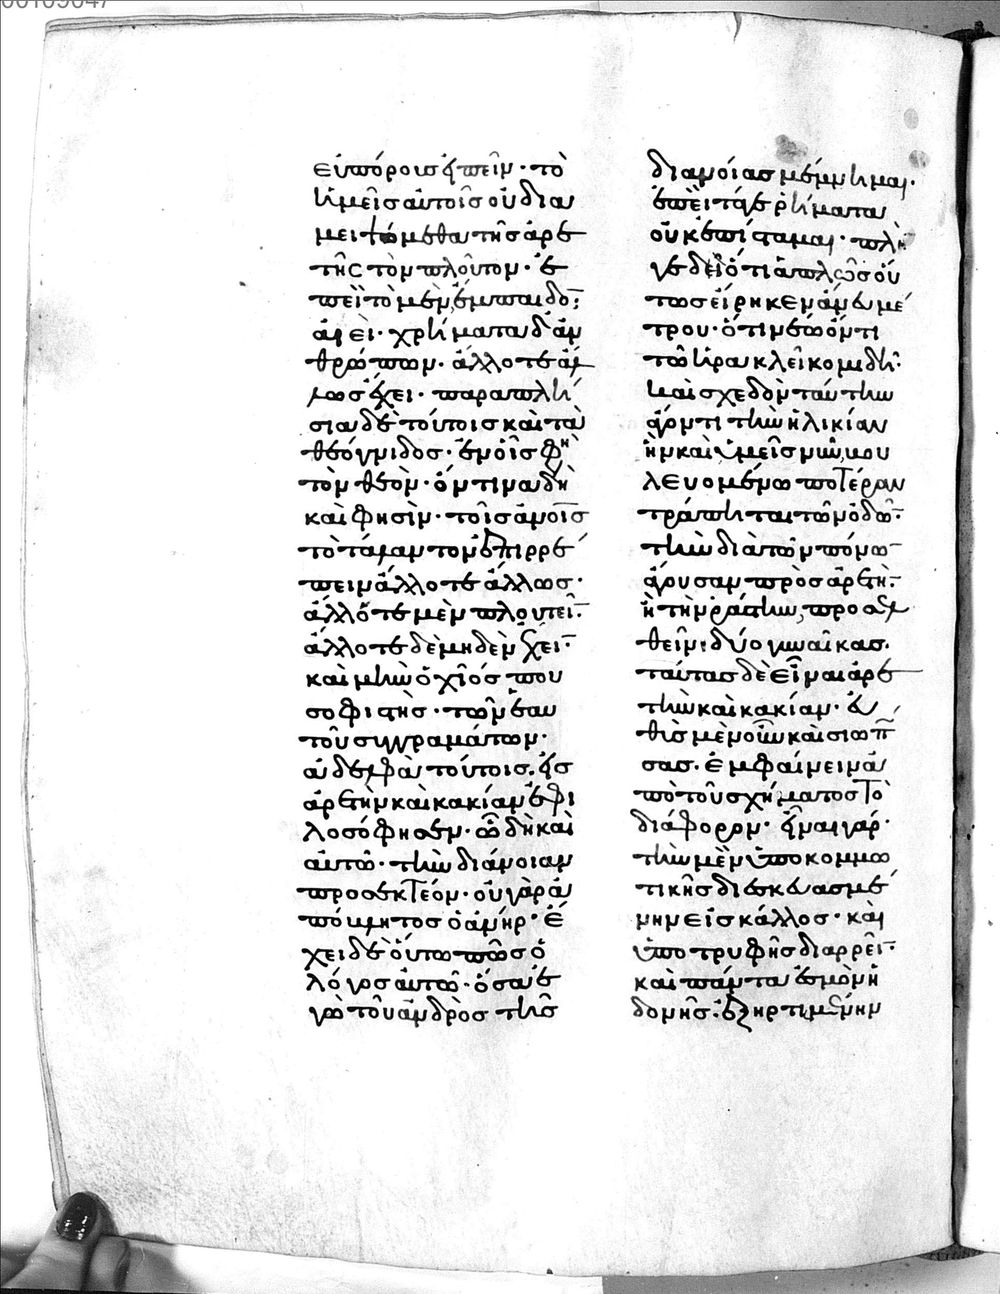 εὐπόροις εἰπεῖν· τὸ
ἡμεῖς αὐτοῖς οὐ δια
μειψώμεθα τῆς ἀρε
τῆς τὸν πλοῦτον· ἐ
πεὶ τὸ μὲν ἔμπεδον
αἰεὶ· χρήματα δ' ἀν
θρώπων· ἄλλοτε ἄλ
λος ἔχει· παραπλή
σια δὲ τούτοις καὶ τὰ
θεόγνιδος· ἐν οἷς φη
τὸν θεὸν· ὅντινα δὴ
καὶ φησὶν· τοῖς ἀνοις
τὸ τάλαντον ἐπιρρέ
πειν ἄλλοτε ἄλλως·
ἄλλοτε μὲν πλουτεῖν·
ἄλλοτε δὲ μηδὲν ἔχειν·
καὶ μὴν ὁ χῖός που
σοφιστὴς· τῶν ἑαυ
τοῦ συγγραμάτων·
ἀδελφὰ τούτοις εἰς
ἀρετὴν καὶ κακίαν ἐφι
λοσόφησεν· ᾧ δὴ καὶ
αὐτῷ· τὴν διάνοιαν
προσεκτέον· οὐ γὰρ ἀ
πόβλητος ὁ ἀνήρ· ἔ
χει δὲ οὕτω πῶς ὁ
λόγος αὐτῷ· ὅσα ἐ
γὼ τοῦ ἀνδρὸς τῆς
διανοίας μέμνημαι·
ἐπεὶ τάγε ῥήματα
οὐκ ἐπίσταμαι· πλὴν
γε δεῖ ὅτι ἁπλῶς οὕ
τως εἴρηκεν ἄνευ μέ
τρου· ὅτι νέῳ ὄντι
τῷ ἡρακλεῖ κομιδῆ·
καὶ σχεδὸν ταύτην
ἄγοντι τὴν ἡλικίαν
ἣν καὶ ὑμεῖς νῦν, βου
λευομένω ποτέραν
τράπηται τῶν ὁδῶν·
τὴν διὰ τῶν πόνων
ἄγουσαν πρὸς ἀρετὴν·
ἢ τὴν ῥάστην, προσελ
θεῖν δύο γυναῖκας.
ταύτας δὲ εἶναι ἀρε
τὴν καὶ κακίαν· εὐ
θὺς μὲν οὖν καὶ σιωπ
σας. ἐμφαίνειν ἀ
πὸ τοῦ σχήματος τὸ
διάφορον· εἶναι γάρ·
τὴν μὲν ὑπὸ κομμω
τικῆς διεσκευασμέ
νην εἰς κάλλος· καὶ
ὑπο τρυφῆς διαρρεῖν·
καὶ πάντα ἐσμὸν ἡ
δονῆς· ἐξηρτημένην